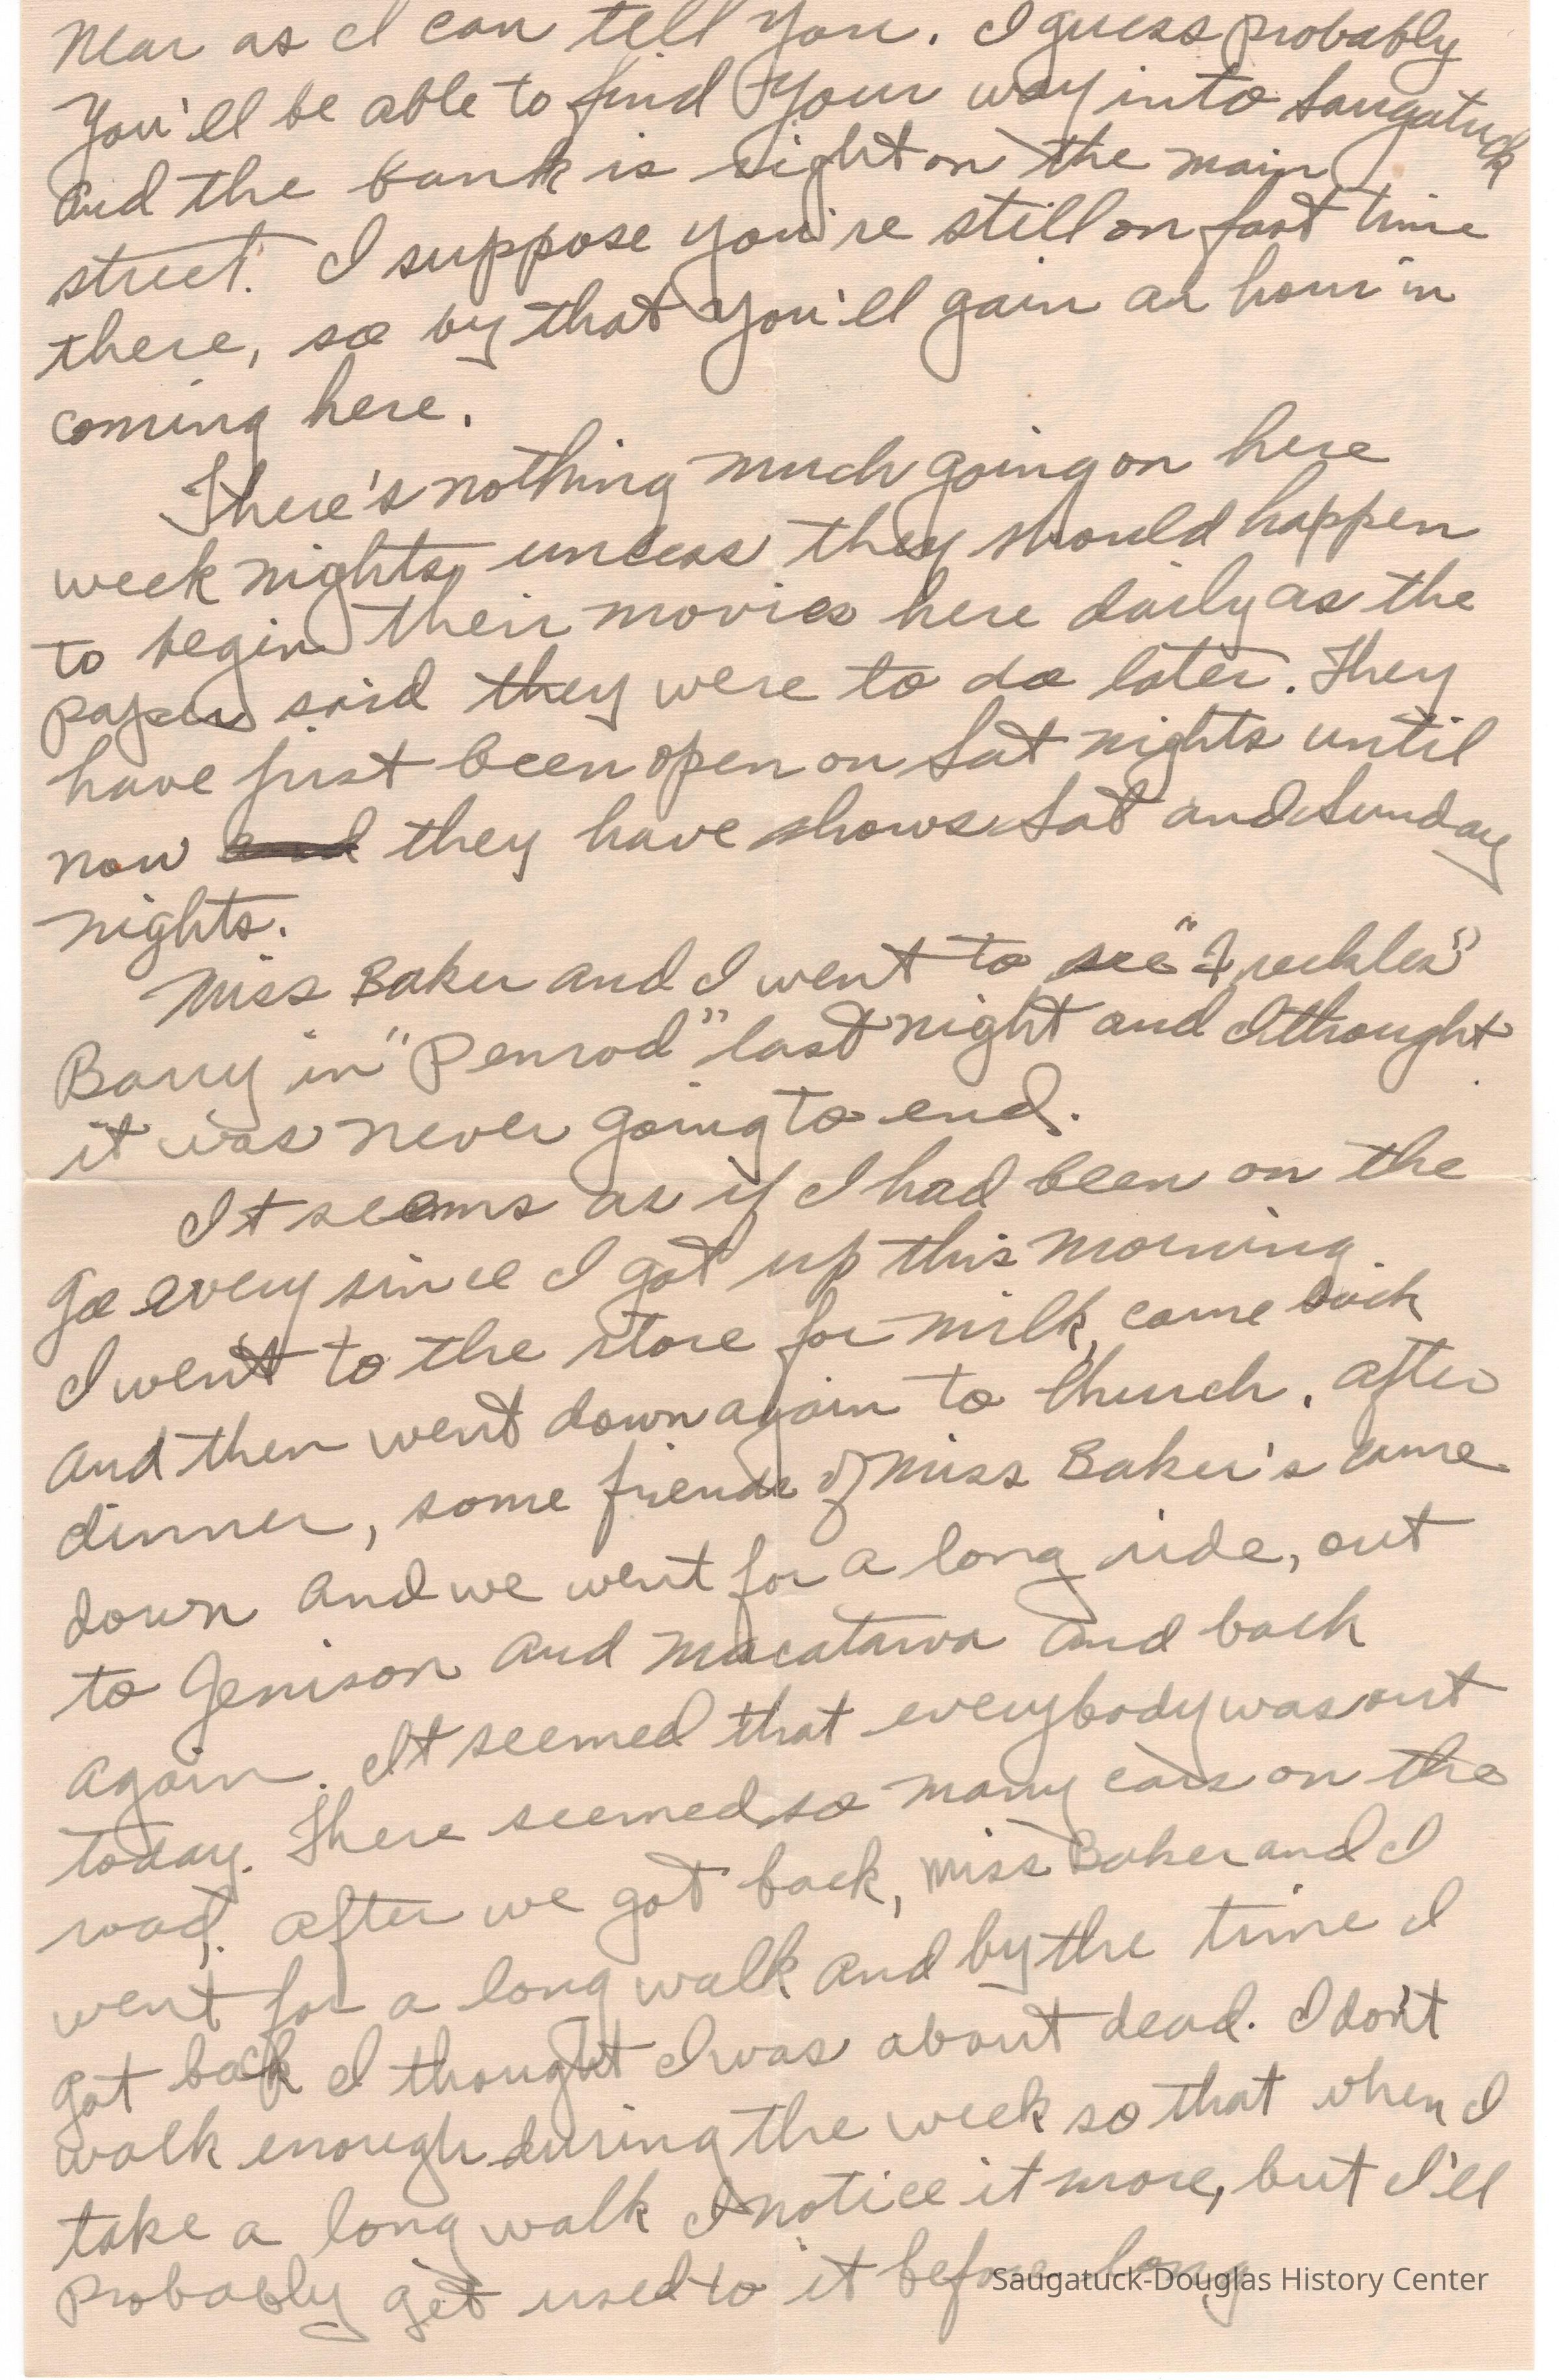 Near as I can tell you. I guess probably
You'll be able to find your way into Saugatuck
and the bank is right on the main
street. I suppose you're still on fast time
there, so by that you'll gain an hour in
coming here.
There's nothing much going on here
week nights, unless they should happen
to begin their movies here daily as the
paper said they were to do later. They
have just been open on Sat nights until
now and they have shows Sat and Sunday
nights.
Miss Baker and I went to see "Freckles"
Barry in "Penrod" last night and I thought
it was never going to end.
It seems as if I had been on the
go every since I got up this morning.
I went to the store for milk, came back
and then went down again to Church. After
dinner, some friends of Miss Baker's came
down and we went for a long ride, out
to Jenison and Macatawa and back
again. It seemed that everybody was out
today. There seemed so many cars on the
road. After we got back, Miss Baker and I
went for a long walk and by the time I
got back I thought I was about dead. I don't
walk enough during the week so that when I
take a long walk I notice it more, but I'll
probably get used to it before long
Saugatuck-Douglas History Center